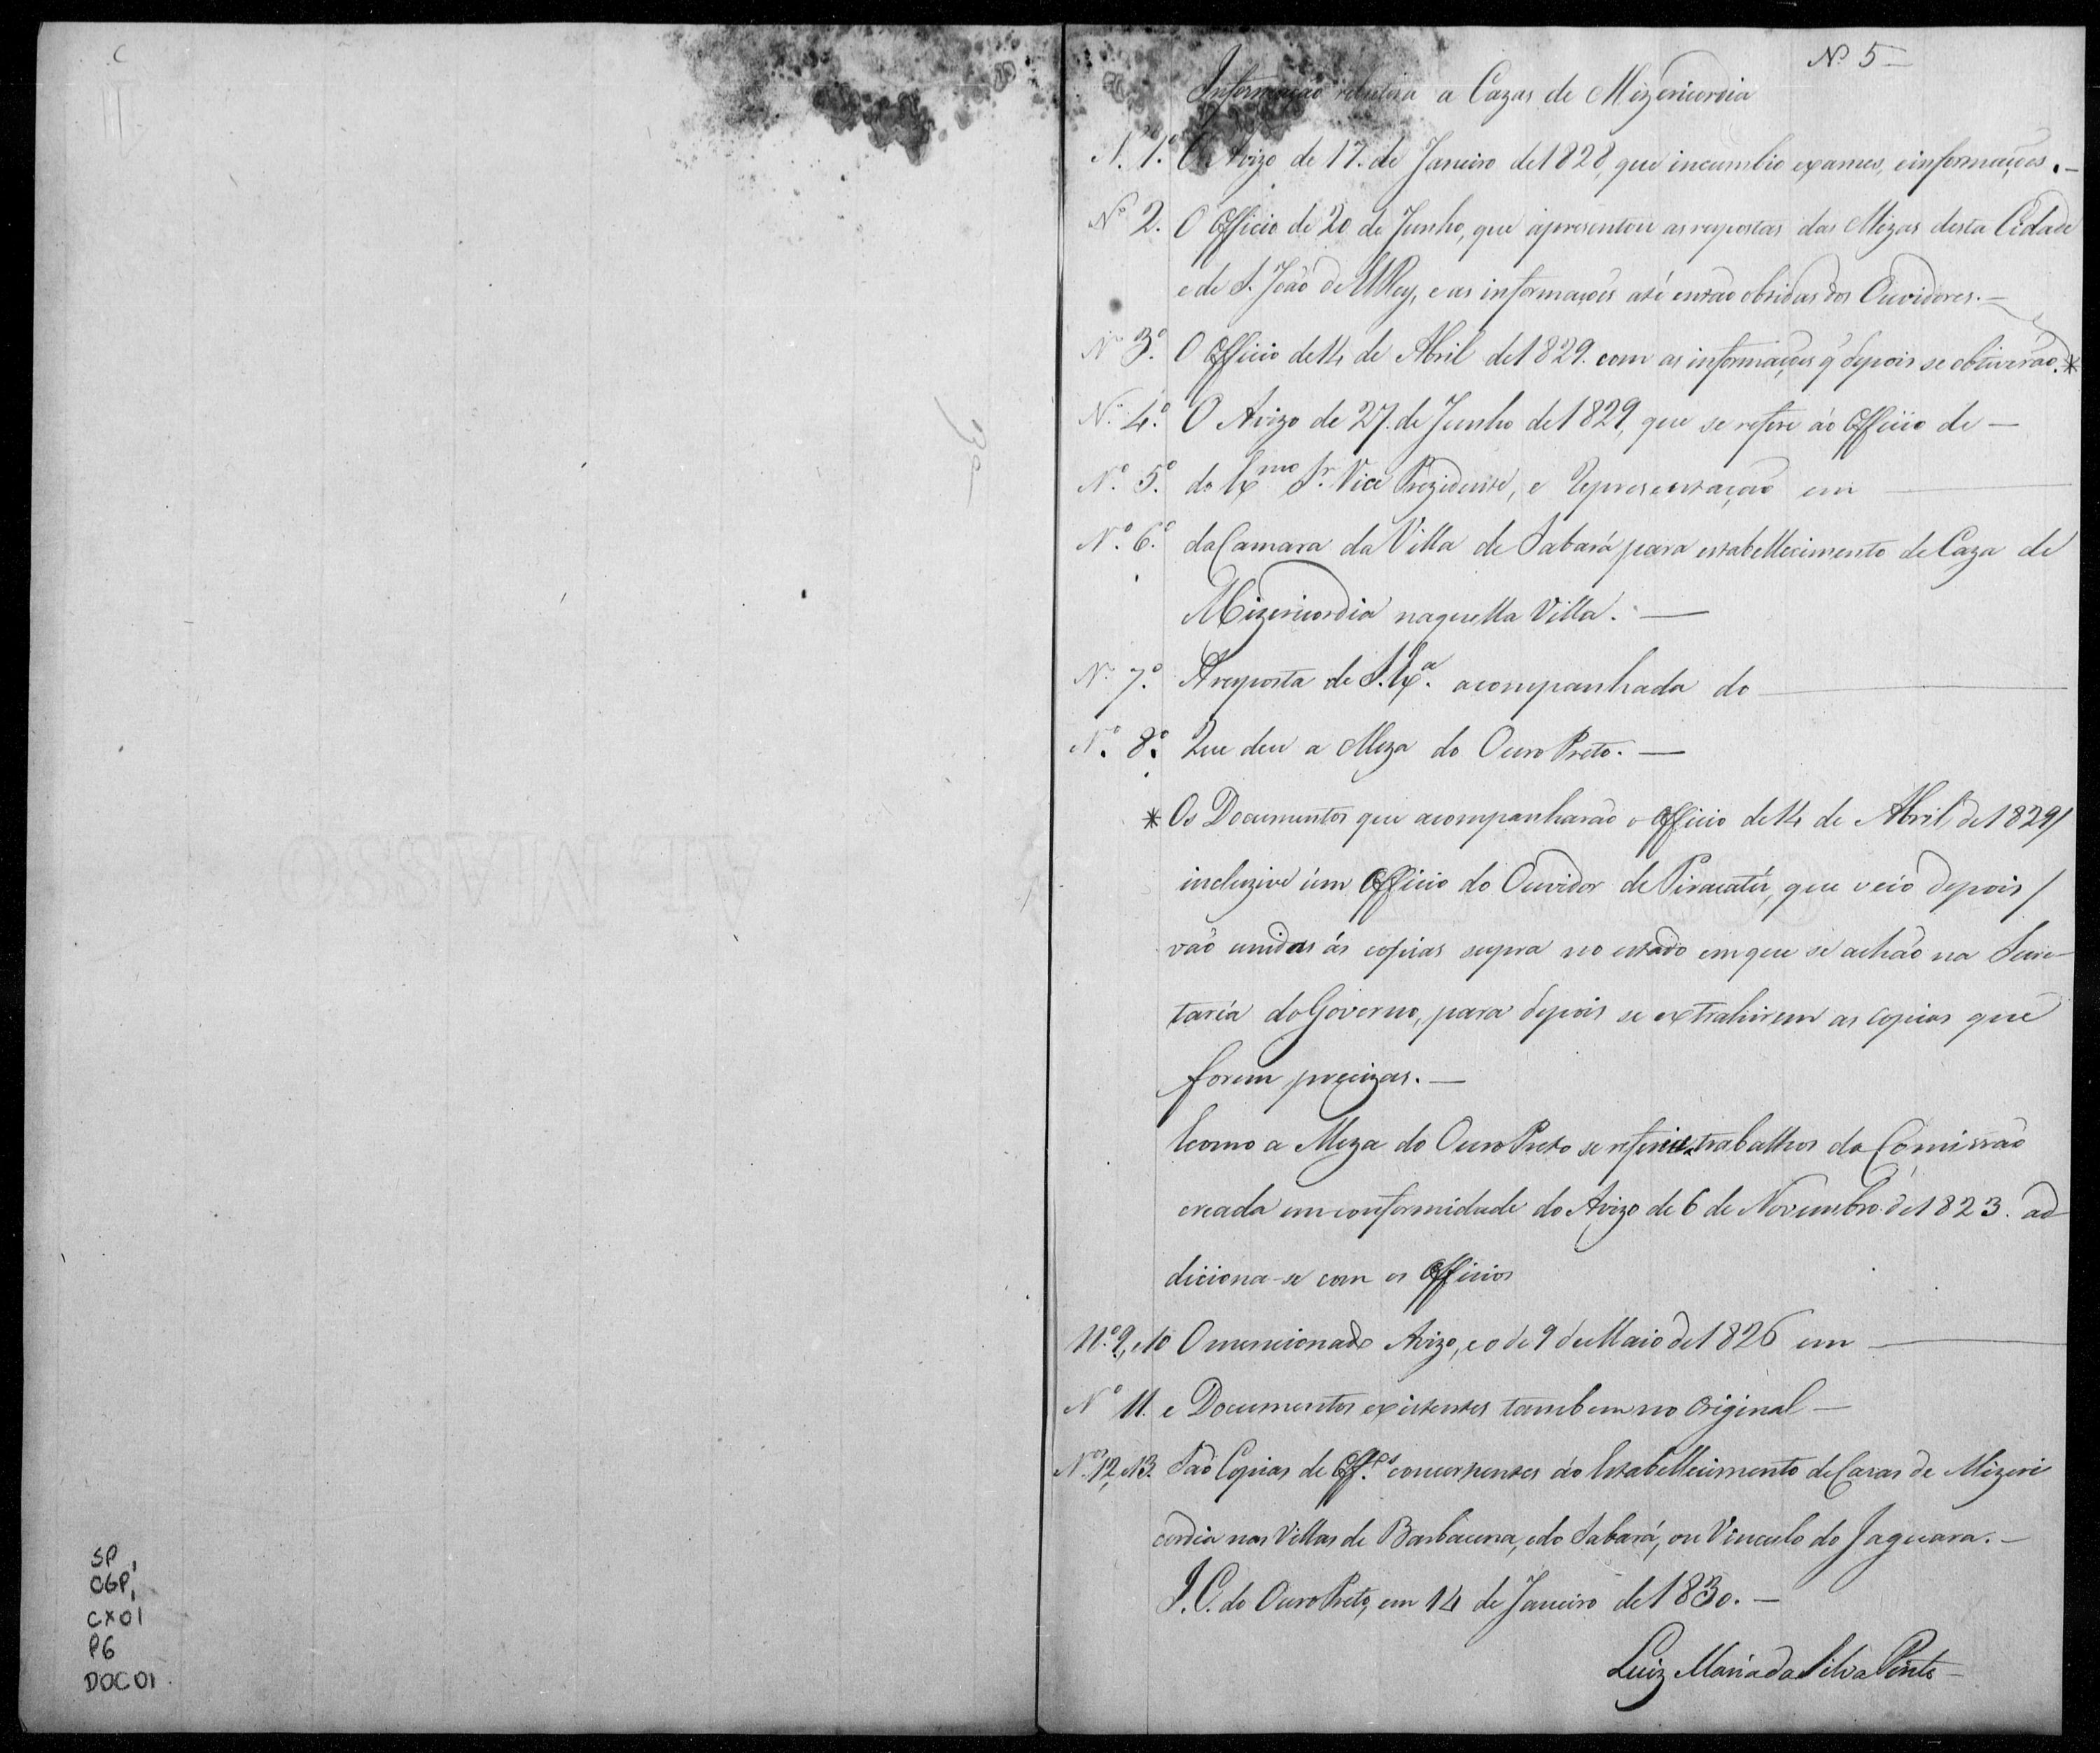 SP,
CGP,
CX01
P6
DOC 01
Nº 5
Informação relativa a Cazas de Mizericordia
N. 1.º O Avizo de 17. de Janeiro de 1828, que incumbio exames, e informações. —
Nº 2. O Officio de 20 de Junho, que apresentou as respostas das Mezas desta Cidade
e de S. João de ElRey, e as informações até então obtidas dos Ouvidores. —
Nº 3.º O Officio de 14 de Abril de 1829. com as informações q' depois se obtiverão. *
N.º 4.º O Avizo de 27. de Junho de 1829, que se refere áo Officio de —
N.º 5.º do Exmo Sr. Vice Prezidente, e Representação em —
N.º 6.º da Camara da Villa de Sabará para estabellecimento de Caza de
Mizericordia naquella Villa. —
N.º 7.º A resposta de S. Exª. acompanhada do —
N.º 8.º Que deu a Meza do Ouro Preto. —
* Os Documentos que acompanharão o Officio de 14 de Abril de 1829/
incluzive úm Officio do Ouvidor de Piracatú, que veio depois/
vão unidos ás copias supra no estado em que se achão na Secre-
taria do Governo, para depois se extrahirem as copias que
forem precizas. —
E como a Meza do Ouro Preto se refere trabalhos da Comissão
creada em conformidade do Avizo de 6 de Novembro de 1823. ad-
diciona-se com os Officios
N.º 9, e 10 O mencionado Avizo, e o de 9 de Maio de 1826 em —
Nº 11. e Documentos existentes tambem no Original —
N.os 12, e 13. São Copias de Off.os concernentes áo Estabellecimento de Casas de Mizeri
cordia nas Villas de Barbacena, e do Sabará, ou Vinculo do Jaguara. —
I. C. do Ouro Preto, em 14 de Janeiro de 1830. —
Luiz Maria da Silva Pinto —